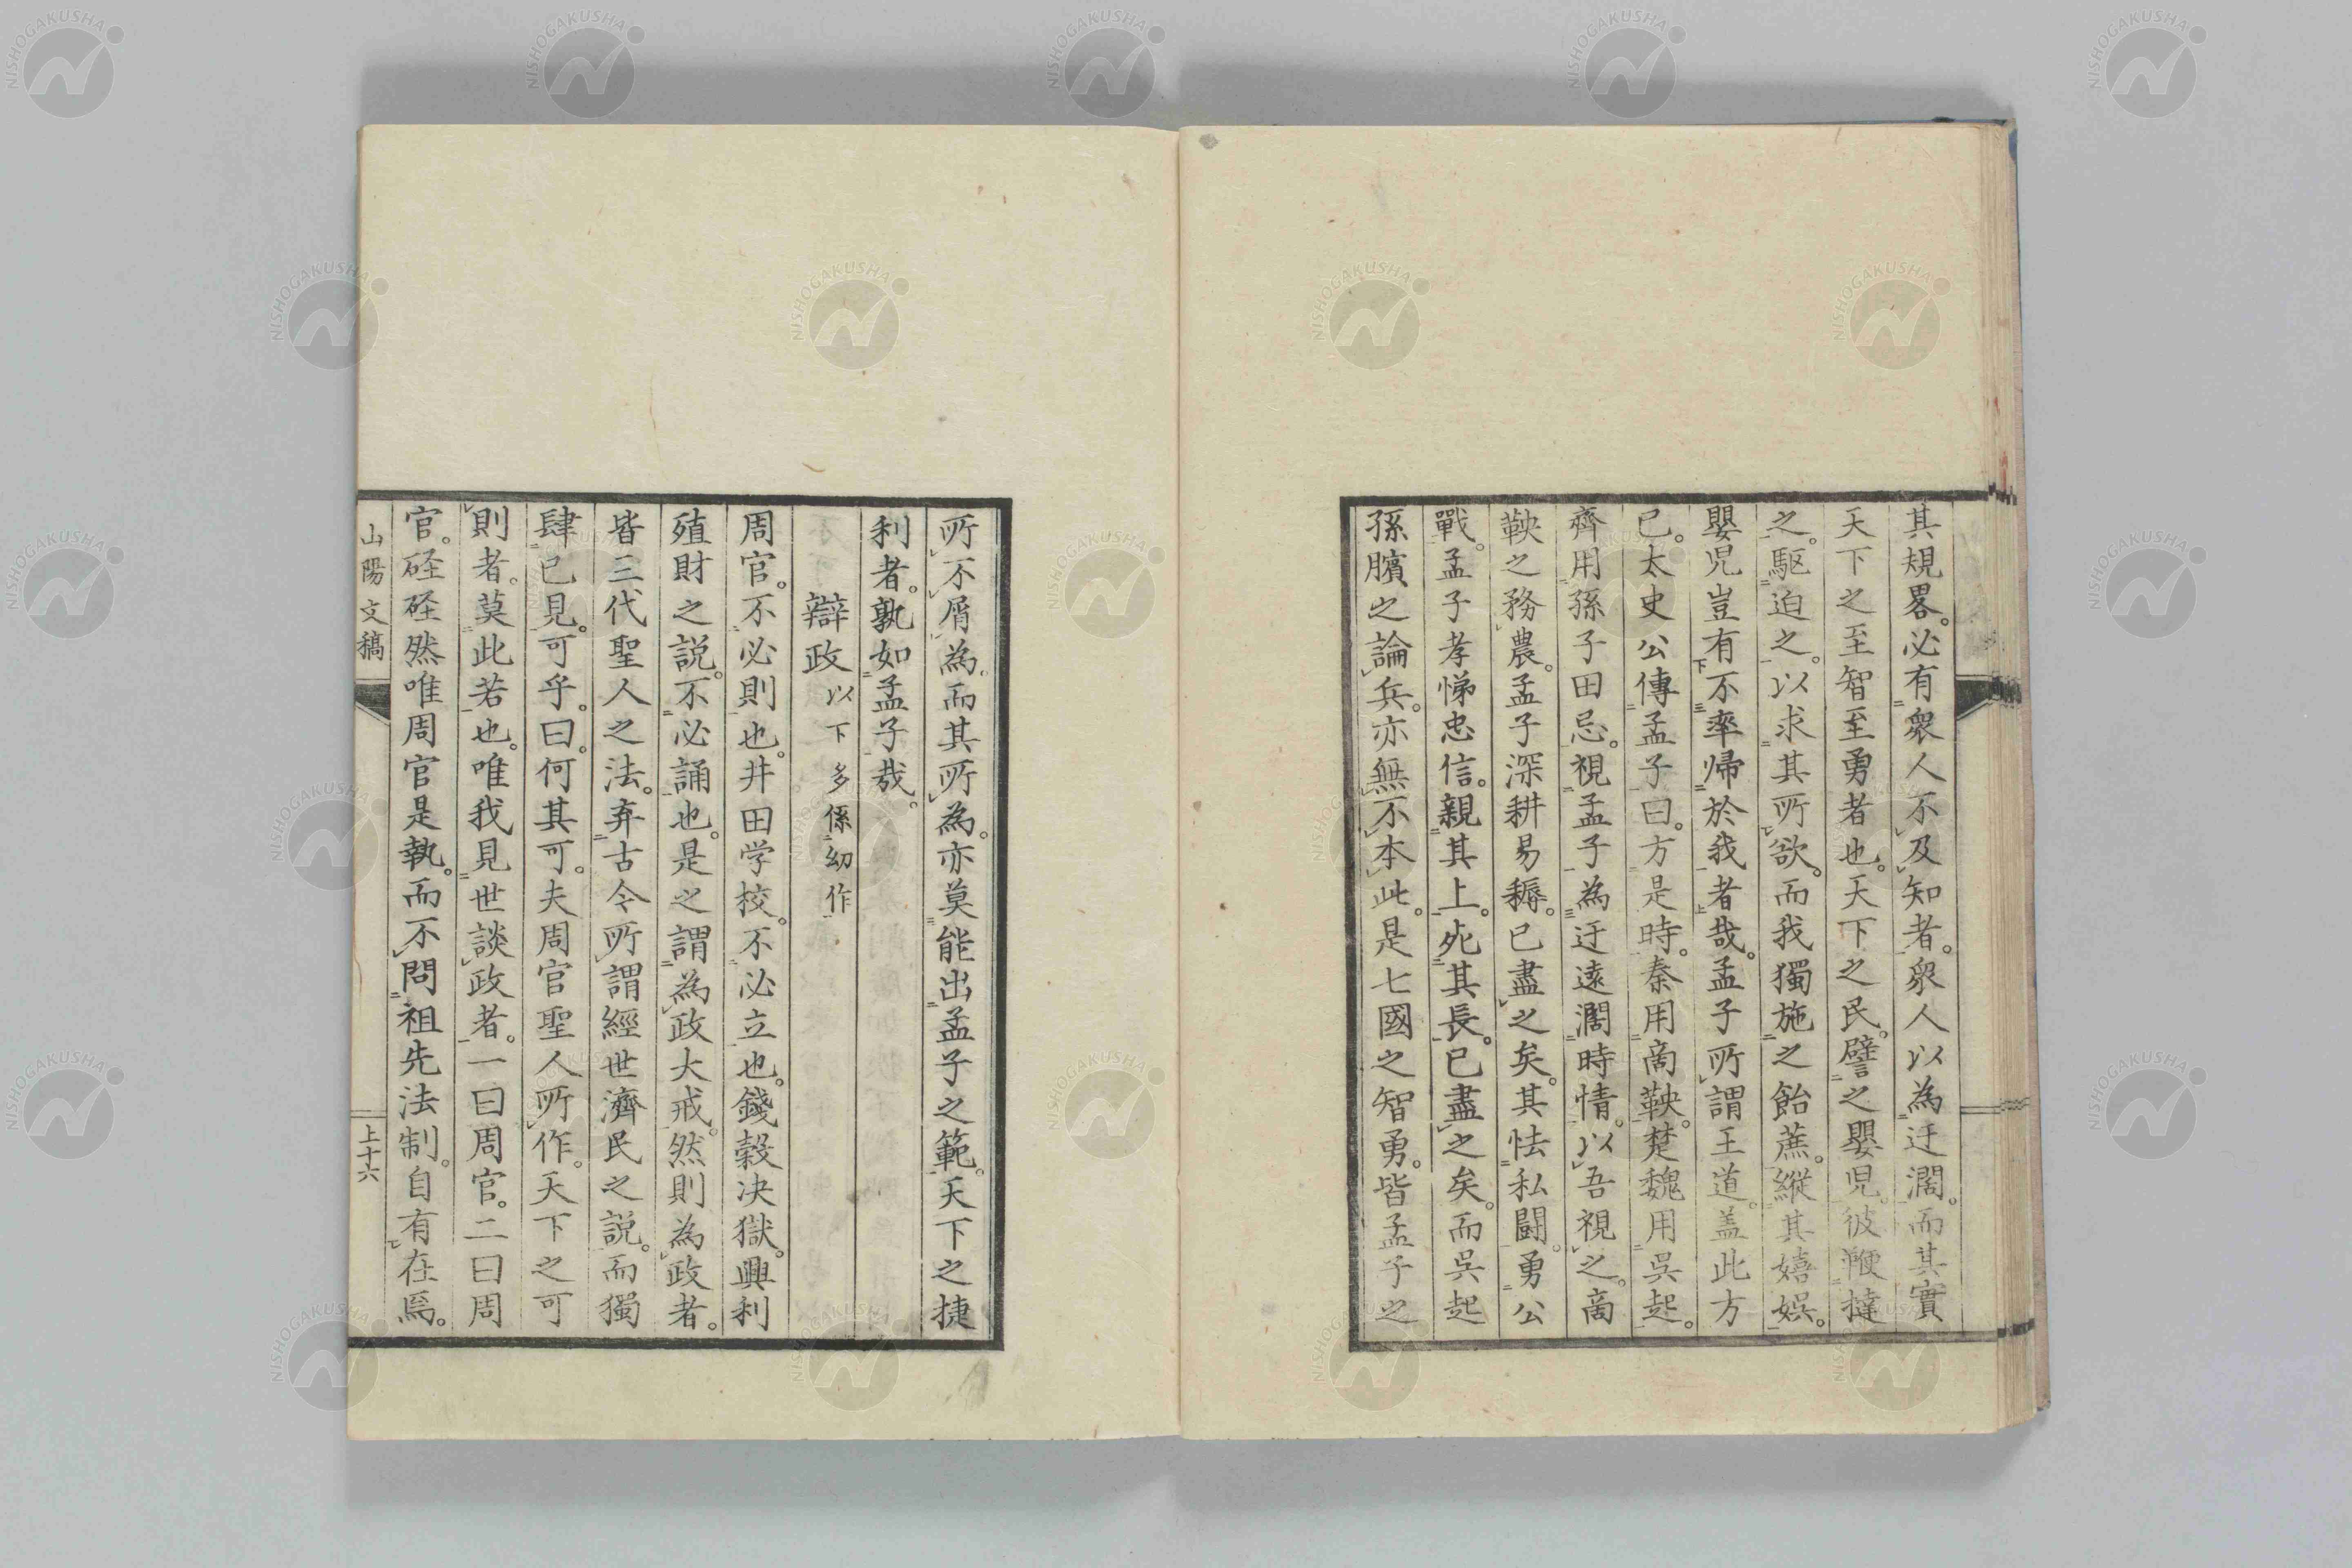 其規畧。必有衆人不及知者。衆人以為迂濶。而其實
天下之至智至勇者也。天下之民。譬之嬰児。彼鞭撻
之。駆迫之。以求其所欲。而我獨施之飴蔗。縦其嬉娯。
嬰児豈有不率帰於我者哉。孟子所謂王道。盖此方
已。太史公傳孟子曰。方是時。秦用商鞅。楚魏用呉起。
齊用孫子田忌。視孟子為迂遠濶時情。以吾視之。商
鞅之務農。孟子深耕易耨。已盡之矣。其怯私闘。勇公
戰。孟子孝悌忠信。親其上。死其長。已盡之矣。而呉起
孫臏之論兵。亦無不本此。是七國之智勇。皆孟子之
所不屑為。而其所為。亦莫能出孟子之範。天下之捷
利者。孰如孟子哉。
辯政 以下多係幼作
周官。不必則也。井田学校。不必立也。錢穀决獄。興利
殖財之説。不必誦也。是之謂為政大戒。然則為政者。
皆三代聖人之法。弃古今所謂經世濟民之説。而獨
肆已見。可乎。曰。何其可。夫周官聖人所作。天下之可
則者。莫此若也。唯我見世談政者。一曰周官。二曰周
官。硜硜然唯周官是執。而不問祖先法制。自有在焉。
山陽文稿
上十六
NISHOGAKUSHA